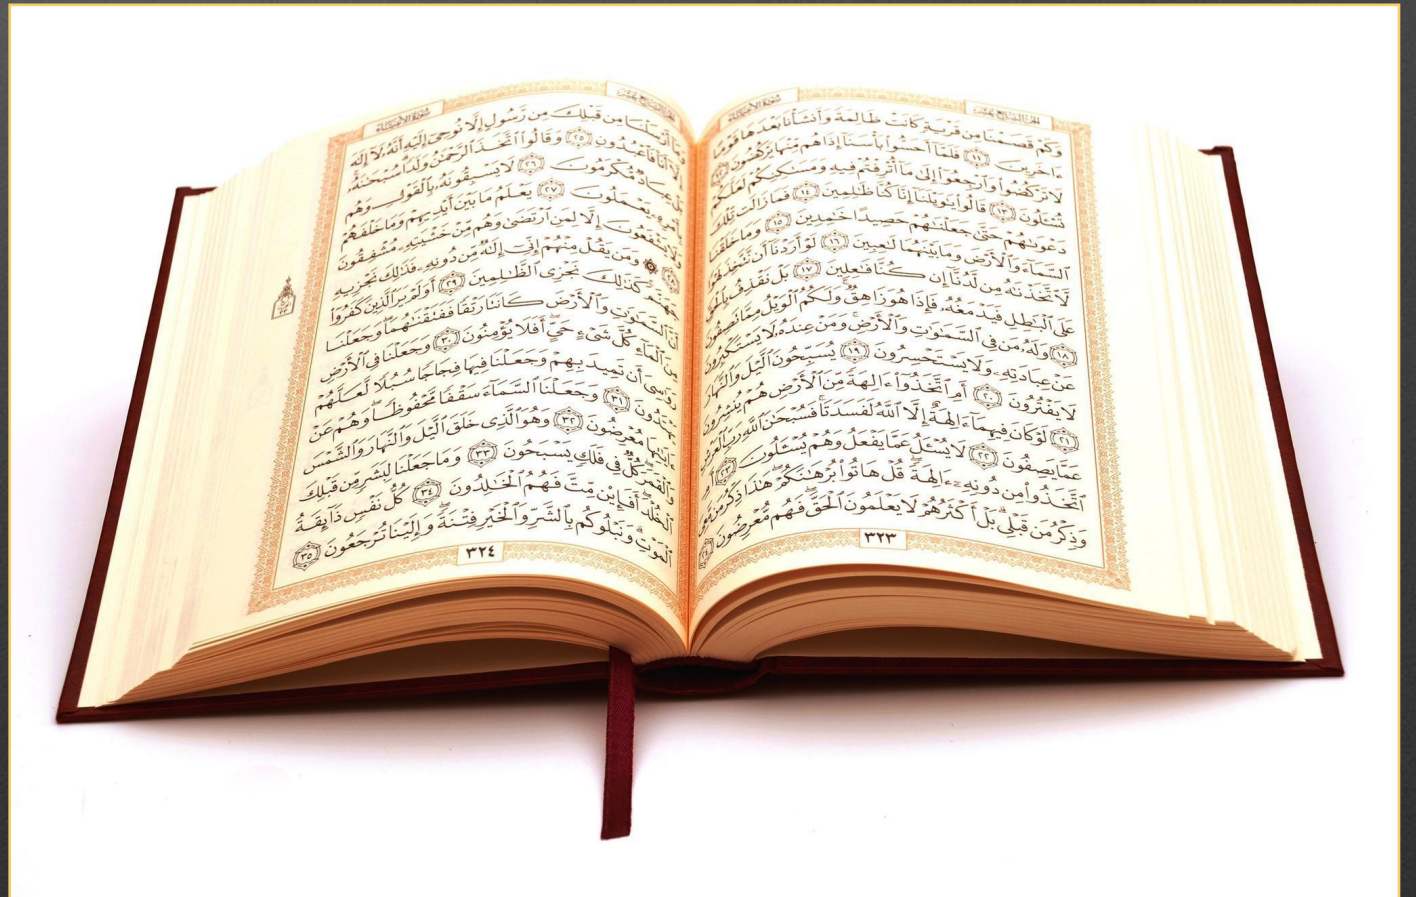 الجزء السابع عشر سورة الأنبياء
وَكَمْ قَصَمْنَا مِن قَرْيَةٍ كَانَتْ ظَالِمَةً وَأَنشَأْنَا بَعْدَهَا قَوْمًا
ءَاخَرِينَ ١١ فَلَمَّآ أَحَسُّوا۟ بَأْسَنَآ إِذَا هُم مِّنْهَا يَرْكُضُونَ ١٢
لَا تَرْكُضُوا۟ وَٱرْجِعُوٓا۟ إِلَىٰ مَآ أُتْرِفْتُمْ فِيهِ وَمَسَٰكِنِكُمْ لَعَلَّكُمْ
تُسْـَٔلُونَ ١٣ قَالُوا۟ يَٰوَيْلَنَآ إِنَّا كُنَّا ظَٰلِمِينَ ١٤ فَمَا زَالَت تِّلْكَ
دَعْوَىٰهُمْ حَتَّىٰ جَعَلْنَٰهُمْ حَصِيدًا خَٰمِدِينَ ١٥ وَمَا خَلَقْنَا
ٱلسَّمَآءَ وَٱلْأَرْضَ وَمَا بَيْنَهُمَا لَٰعِبِينَ ١٦ لَوْ أَرَدْنَآ أَن نَّتَّخِذَ لَهْوًا
لَّٱتَّخَذْنَٰهُ مِن لَّدُنَّآ إِن كُنَّا فَٰعِلِينَ ١٧ بَلْ نَقْذِفُ بِٱلْحَقِّ
عَلَى ٱلْبَٰطِلِ فَيَدْمَغُهُۥ فَإِذَا هُوَ زَاهِقٌ وَلَكُمُ ٱلْوَيْلُ مِمَّا تَصِفُونَ
١٨ وَلَهُۥ مَن فِى ٱلسَّمَٰوَٰتِ وَٱلْأَرْضِ وَمَنْ عِندَهُۥ لَا يَسْتَكْبِرُونَ
عَنْ عِبَادَتِهِۦ وَلَا يَسْتَحْسِرُونَ ١٩ يُسَبِّحُونَ ٱلَّيْلَ وَٱلنَّهَارَ
لَا يَفْتُرُونَ ٢٠ أَمِ ٱتَّخَذُوٓا۟ ءَالِهَةً مِّنَ ٱلْأَرْضِ هُمْ يُنشِرُونَ
٢١ لَوْ كَانَ فِيهِمَآ ءَالِهَةٌ إِلَّا ٱللَّهُ لَفَسَدَتَا فَسُبْحَٰنَ ٱللَّهِ رَبِّ ٱلْعَرْشِ
عَمَّا يَصِفُونَ ٢٢ لَا يُسْـَٔلُ عَمَّا يَفْعَلُ وَهُمْ يُسْـَٔلُونَ ٢٣ أَمِ
ٱتَّخَذُوا۟ مِن دُونِهِۦٓ ءَالِهَةً قُلْ هَاتُوا۟ بُرْهَٰنَكُمْ هَٰذَا ذِكْرُ مَن مَّعِىَ
وَذِكْرُ مَن قَبْلِى بَلْ أَكْثَرُهُمْ لَا يَعْلَمُونَ ٱلْحَقَّ فَهُم مُّعْرِضُونَ ٢٤
٣٢٣
الجزء السابع عشر سورة الأنبياء
وَمَآ أَرْسَلْنَا مِن قَبْلِكَ مِن رَّسُولٍ إِلَّا نُوحِىٓ إِلَيْهِ أَنَّهُۥ لَآ إِلَٰهَ
إِلَّآ أَنَا۠ فَٱعْبُدُونِ ٢٥ وَقَالُوا۟ ٱتَّخَذَ ٱلرَّحْمَٰنُ وَلَدًا سُبْحَٰنَهُۥ
بَلْ عِبَادٌ مُّكْرَمُونَ ٢٦ لَا يَسْبِقُونَهُۥ بِٱلْقَوْلِ وَهُم
بِأَمْرِهِۦ يَعْمَلُونَ ٢٧ يَعْلَمُ مَا بَيْنَ أَيْدِيهِمْ وَمَا خَلْفَهُمْ
وَلَا يَشْفَعُونَ إِلَّا لِمَنِ ٱرْتَضَىٰ وَهُم مِّنْ خَشْيَتِهِۦ مُشْفِقُونَ
٢٨ ۞ وَمَن يَقُلْ مِنْهُمْ إِنِّىٓ إِلَٰهٌ مِّن دُونِهِۦ فَذَٰلِكَ نَجْزِيهِ
جَهَنَّمَ كَذَٰلِكَ نَجْزِى ٱلظَّٰلِمِينَ ٢٩ أَوَلَمْ يَرَ ٱلَّذِينَ كَفَرُوٓا۟
أَنَّ ٱلسَّمَٰوَٰتِ وَٱلْأَرْضَ كَانَتَا رَتْقًا فَفَتَقْنَٰهُمَا وَجَعَلْنَا
مِنَ ٱلْمَآءِ كُلَّ شَىْءٍ حَىٍّ أَفَلَا يُؤْمِنُونَ ٣٠ وَجَعَلْنَا فِى ٱلْأَرْضِ
رَوَٰسِىَ أَن تَمِيدَ بِهِمْ وَجَعَلْنَا فِيهَا فِجَاجًا سُبُلًا لَّعَلَّهُمْ
يَهْتَدُونَ ٣١ وَجَعَلْنَا ٱلسَّمَآءَ سَقْفًا مَّحْفُوظًا وَهُمْ عَنْ
ءَايَٰتِهَا مُعْرِضُونَ ٣٢ وَهُوَ ٱلَّذِى خَلَقَ ٱلَّيْلَ وَٱلنَّهَارَ وَٱلشَّمْسَ
وَٱلْقَمَرَ كُلٌّ فِى فَلَكٍ يَسْبَحُونَ ٣٣ وَمَا جَعَلْنَا لِبَشَرٍ مِّن قَبْلِكَ
ٱلْخُلْدَ أَفَإِي۟ن مِّتَّ فَهُمُ ٱلْخَٰلِدُونَ ٣٤ كُلُّ نَفْسٍ ذَآئِقَةُ
ٱلْمَوْتِ وَنَبْلُوكُم بِٱلشَّرِّ وَٱلْخَيْرِ فِتْنَةً وَإِلَيْنَا تُرْجَعُونَ ٣٥
٣٢٤